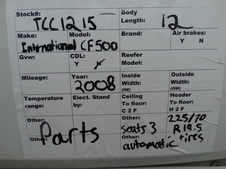 Stock#: TCC1215 Body Length: 12
Make: International Model: CF500 Brand: Air brakes: Y N
Gvw: CDL: Y N Reefer Model:
Mileage: Year: 2008 Inside Width: (OW) Outside Width: (OW)
Temperature range: Elect. Stand by: Ceiling To floor: C 2 F Header To floor: H 2 F
Other: Parts Other: seats 3 Other: 225/70 R19.5 tires
Other: automatic